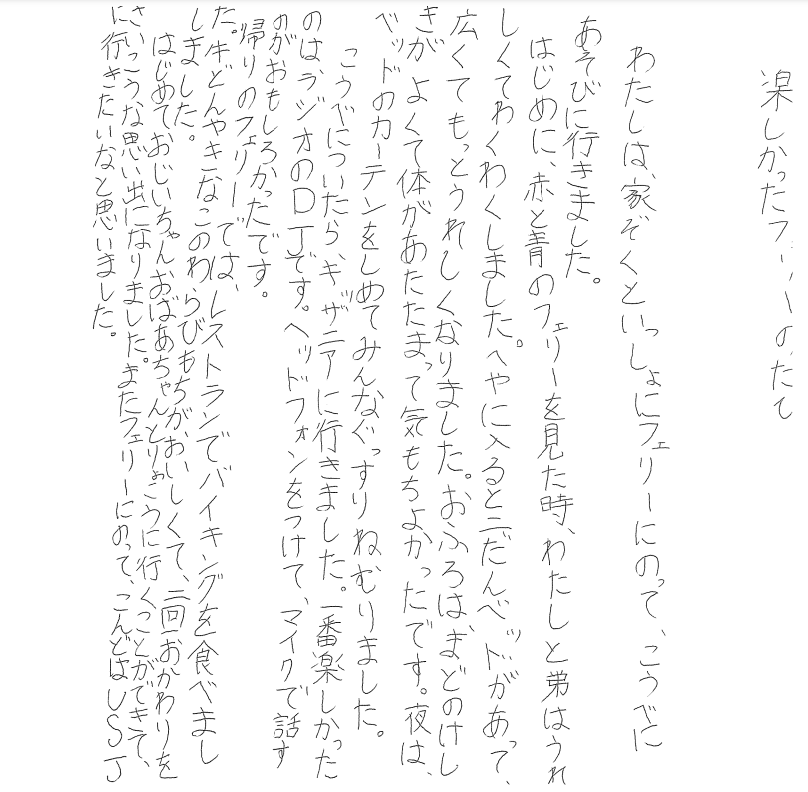 楽しかったフェリーのたび
わたしは、家ぞくといっしょにフェリーにのって、こうべに
あそびに行きました。
はじめに、赤と青のフェリーを見た時、わたしと弟はうれ
しくてわくわくしました。へやに入ると二だんベッドがあって、
広くてもっとうれしくなりました。おふろは、まどのけし
きがよくて体があたたまって気もちよかったです。夜は、
ベッドのカーテンをしめてみんなぐっすりねむりました。
こうべについたら、キッザニアに行きました。一番楽しかった
のは、ラジオのDJです。ヘッドフォンをつけて、マイクで話す
のがおもしろかったです。
帰りのフェリーでは、レストランでバイキングを食べまし
た。牛どんやきなこのわらびもちがおいしくて、二回おかわりを
しました。
はじめておじいちゃんおばあちゃんとりょこうに行くことができて、
さいこうな思い出になりました。またフェリーにのって、こんどはUSJ
に行きたいなと思いました。